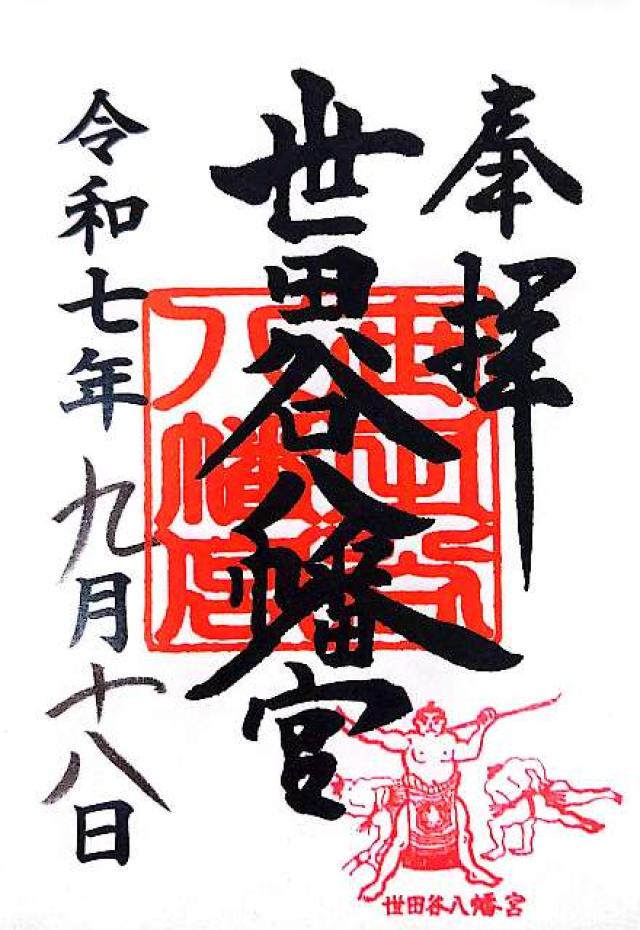 奉拝
世田谷八幡宮
令和七年九月十八日
世田谷八幡宮
世田谷八幡宮